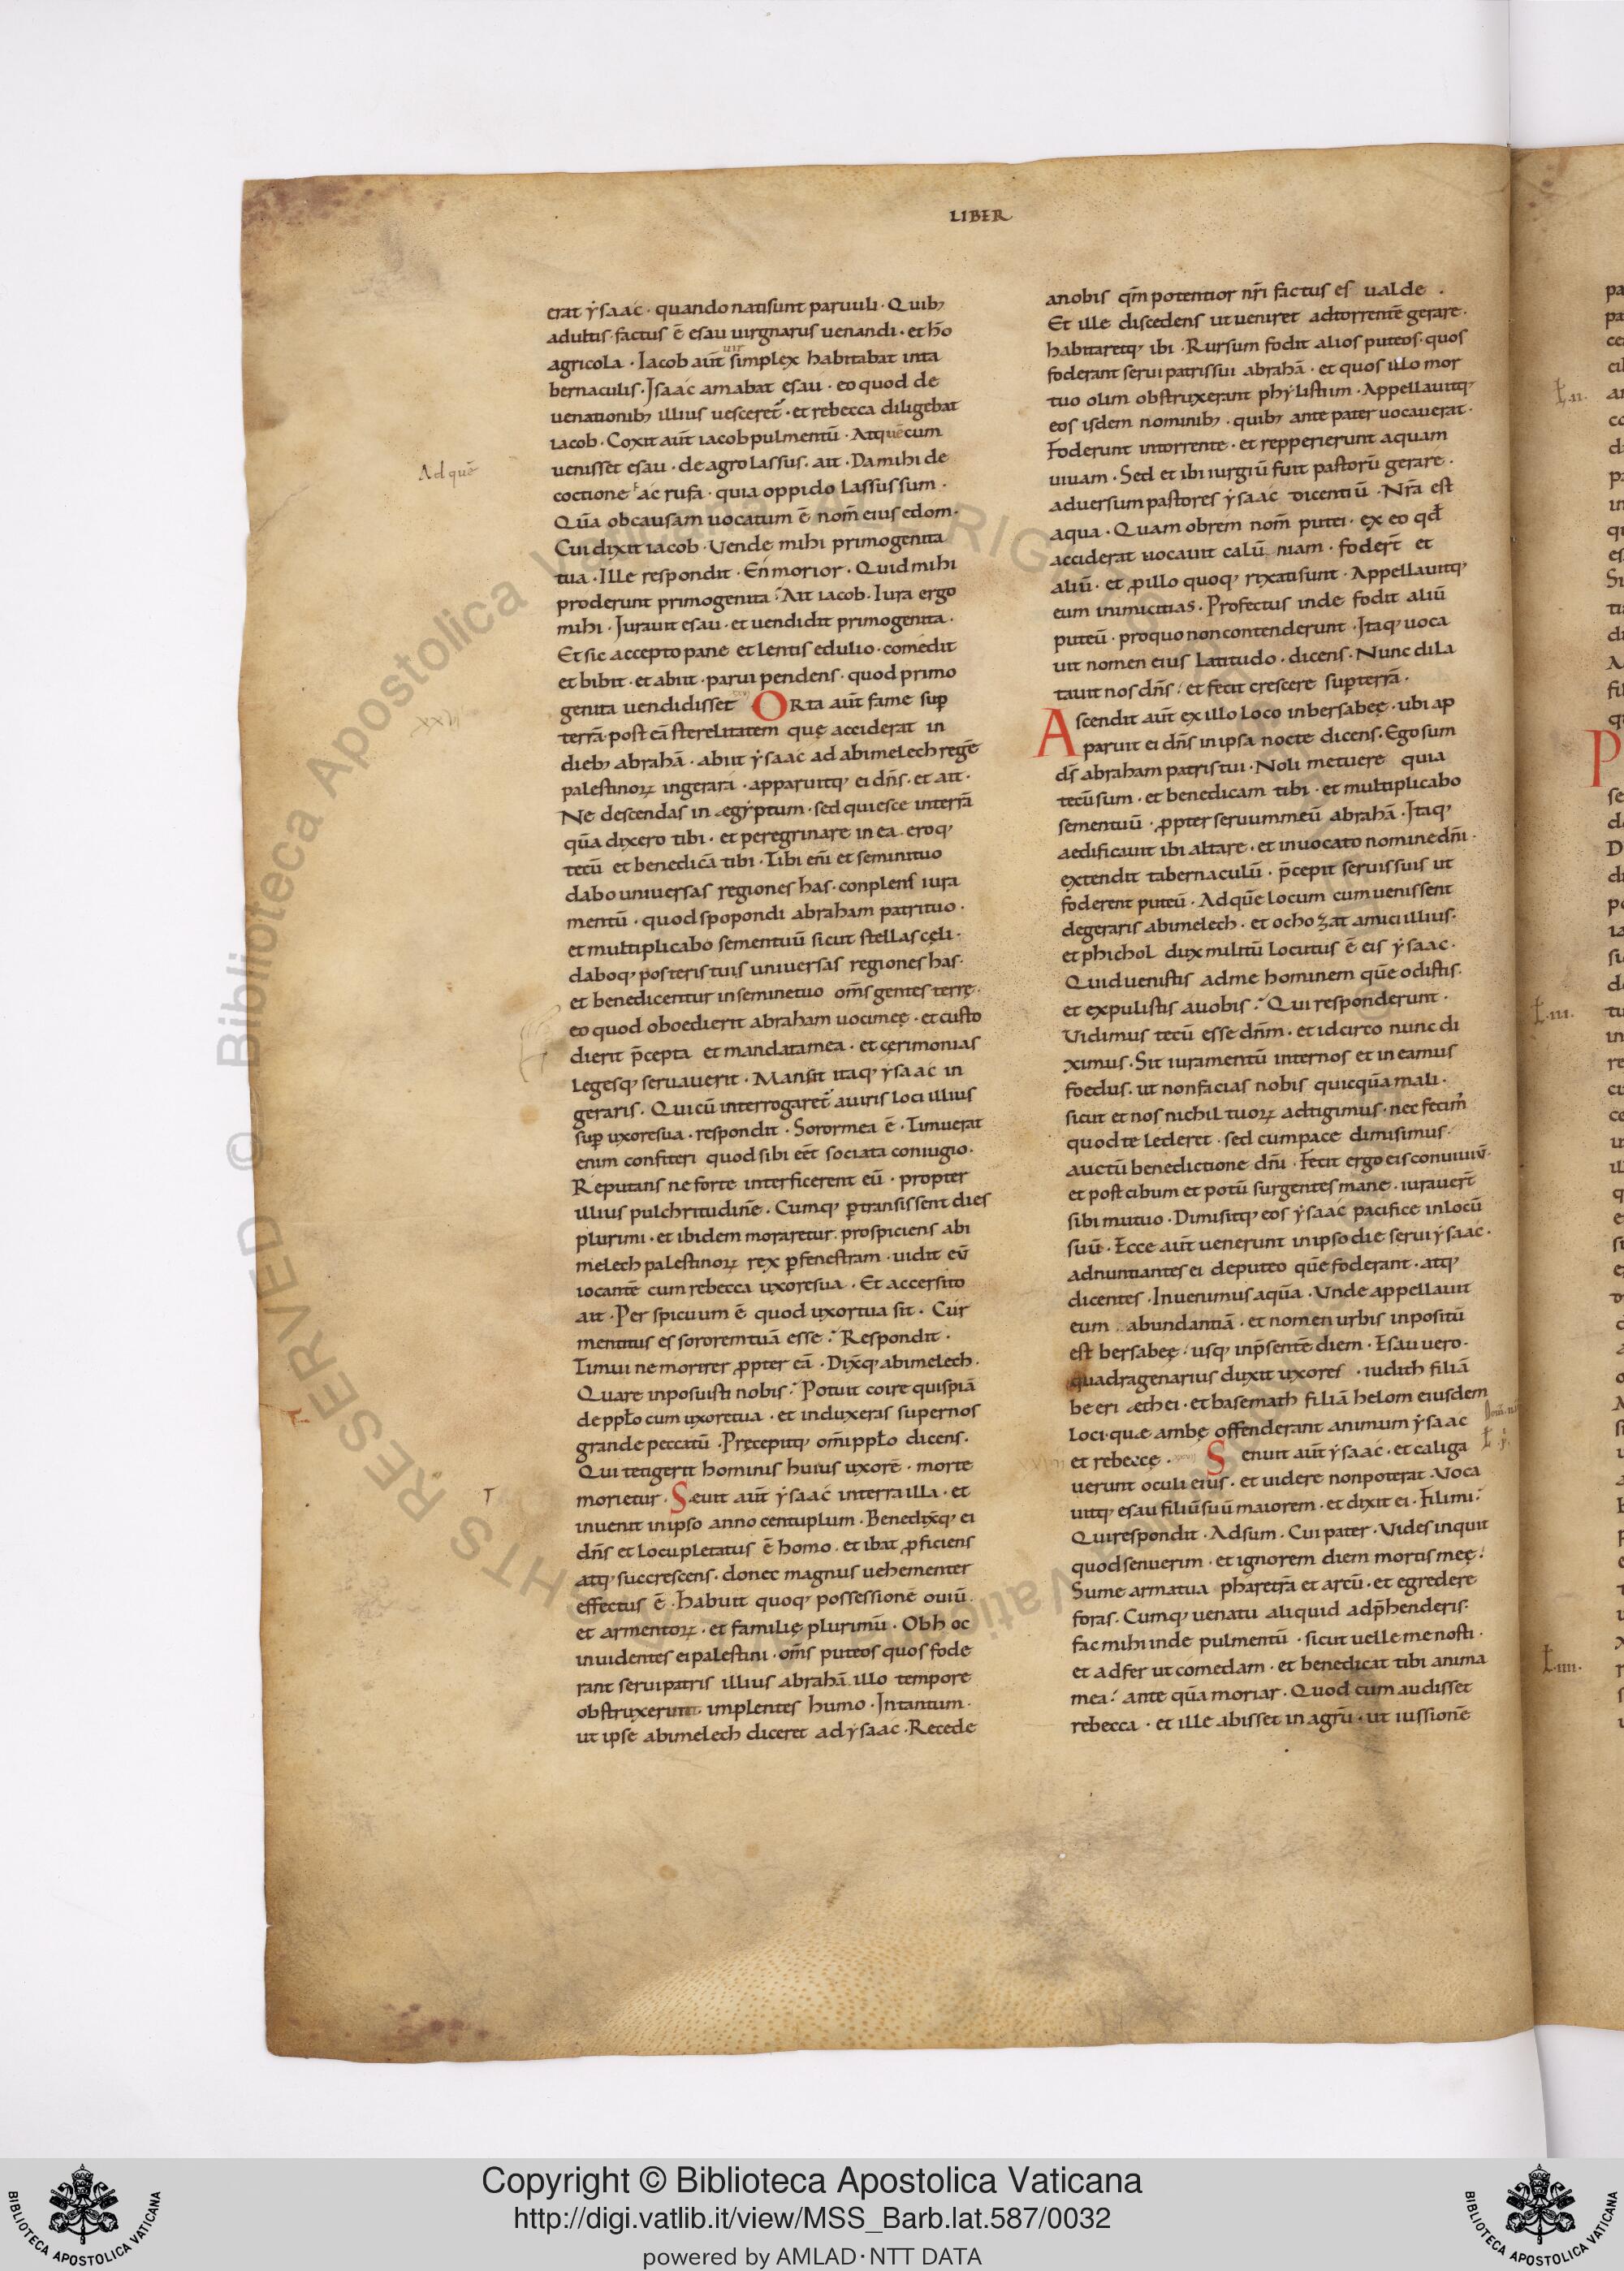 LIBER
erat ẏsaac · quando nati sunt paruuli · Quib;
adultis · factus ē esau uir gnarus uenandi · et ho
agricola · Iacob aut̄ uir simplex habitabat in ta
bernaculis · Jsaac amabat esau · eo quod de
uenationib; illius uesceret̄ · et rebecca diligebat
iacob · Coxit aut̄ iacob pulmentū · Atquē cum
Ad quē
uenisset esau · de agro lassus · ait · Da mihi de
coctione hac rufa · quia oppido lassus sum ·
Qūa ob causam uocatum ē nom̄ eius edom ·
Cui dixit iacob · Vende mihi primogenita
tua · Ille respondit · En morior · Quid mihi
proderunt primogenita? Ait iacob · Iura ergo
mihi · Jurauit esau · et uendidit primogenita ·
Et sic accepto pane et lentis edulio · comedit
et bibit · et abiit · parui pendens · quod primo
genita uendidisset · ORta aut̄ fame suꝑ
xxvi
terrā · post eā sterelitatem quę acciderat in
dieb; abrahā · abiit ẏsaac ad abimelech regē
palestinoꝝ in gerara · apparuitq; ei dn̄s · et ait ·
Ne descendas in ægẏptum · sed quiesce in terrā
qūa dixero tibi · et peregrinare in ea · eroq;
tecū et benedicā tibi · Tibi eni̅ et semini tuo
dabo uniuersas regiones has · conplens iura
mentū · quod spopondi abraham patri tuo ·
et multiplicabo semen tuū sicut stellas cęli ·
daboq; posteris tuis uniuersas regiones has ·
et benedicentur in semine tuo om̄s gentes terrę ·
eo quod oboedierit abraham uoci meę · et custo
dierit p̄cepta et mandata mea · et cęrimonias
legesq; seruauerit · Mansit itaq; ẏsaac in
geraris · Qui cū interrogaret̄ a uiris loci illius
suꝑ uxore sua · respondit · Soror mea ē · Timuerat
enim confiteri quod sibi eēt sociata coniugio ·
Reputans ne forte interficerent eū · propter
illius pulchritudinē · Cumq; ꝑtransissent dies
plurimi · et ibidem moraretur · prospiciens abi
melech palestinoꝝ rex ꝑ fenestram · uidit eū
iocantē cum rebecca uxore sua · Et accersito
ait · Perspicuum ē quod uxor tua sit · Cur
mentitus es sororem tuā esse? Respondit ·
Timui ne morirer ꝓpter eā · Dix̄q; abimelech ·
Quare inposuisti nobis? Potuit coire quispiā
de pplo cum uxore tua · et induxeras super nos
grande peccatū · Pręcepitq; om̄i pplo dicens ·
Qui tetigerit hominis huius uxorē · morte
morietur · Seuit aut̄ ẏsaac in terra illa · et
inuenit in ipso anno centuplum · Benedix̄q; ei
dn̄s et locupletatus ē homo · et ibat ꝓficiens
atq; succrescens · donec magnus uehementer
effectus ē · habuit quoq; possessionē ouiū ·
et armentoꝝ · et familię plurimū · Ob hoc
inuidentes ei palestini · om̄s puteos quos fode
rant serui patris illius abrahā illo tempore
obstruxerunt · implentes humo · Jn tantum ·
ut ipse abimelech diceret ad ẏsaac · Recede
a nobis qm̄ potentior nr̄i factus es ualde ·
Et ille discedens ut ueniret ad torrentē gerare ·
habitaretq; ibi · Rursum fodit alios puteos · quos
foderant serui patris sui abrahā · et quos illo mor
tuo olim obstruxerant phẏlistiim · Appellauitq;
eos isdem nominib; · quib; ante pater uocauerat ·
Foderunt in torrente · et reppererunt aquam
uiuam · Sed et ibi iurgiū fuit pastorū gerare ·
aduersum pastores ẏsaac dicentiū · Nr̄a est
aqua · Quam obrem nom̄ putei · ex eo qd̄
acciderat uocauit calū niam · fodert̄ et
aliū · et ꝓ illo quoq; rixati sunt · Appellauitq;
eum inimicitias · Profectus inde fodit aliū
puteū · pro quo non contenderunt · Jtaq; uoca
uit nomen eius latitudo · dicens · Nunc dila
tauit nos dn̄s · et fecit crescere suꝑ terrā ·
Ascendit aut̄ ex illo loco in bersabeę · ubi ap
paruit ei dn̄s in ipsa nocte dicens · Ego sum
ds̄ abraham patris tui · Noli metuere quia
tecū sum · et benedicam tibi · et multiplicabo
semen tuū · ꝓpter seruum meū abrahā · Jtaq;
aedificauit ibi altare · et inuocato nomine dn̄i ·
extendit tabernaculū · p̄cepit seruis suis ut
foderent puteū · Ad quē locum cum uenissent
de geraris abimelech · et ochozat amici illius ·
et phichol dux militū locutus ē eis ẏsaac ·
Quid uenistis ad me hominem quē odistis ·
et expulistis a uobis? Qui responderunt ·
Vidimus tecū esse dn̄m · et idcirco nunc di
ximus · Sit iuramentū inter nos et ineamus
foedus · ut non facias nobis quicquā mali ·
sicut et nos nichil tuoꝝ adtigimus · nec fecim᷒
quod te lederet · sed cum pace dimisimus
auctū benedictione dn̄i · Fecit ergo eis conuiuiū ·
et post cibum et potū surgentes mane · iurauert̄
sibi mutuo · Dimisitq; eos ẏsaac pacifice in locū
suū · Ecce aut̄ uenerunt in ipso die serui ẏsaac ·
adnuntiantes ei de puteo quē foderant · atq;
dicentes · Inuenimus aquā · Vnde appellauit
eum abundantiā · et nomen urbis inpositū
est bersabeę · usq; in p̄sentē diem · Esau uero ·
quadragenarius duxit uxores · iudith filiā
beeri æthei · et basemath filiā helom eiusdem
loci · quæ ambę offenderant animum ẏsaac
et rebeccę · Senuit aut̄ ẏsaac · et caliga
uerunt oculi eius · et uidere non poterat · Voca
uitq; esau filiū suū maiorem · et dixit ei · Fili mi?
Qui respondit · Adsum · Cui pater · Vides inquit
quod senuerim · et ignorem diem mortis meę ·
Sume arma tua pharetrā et arcū · et egredere
foras · Cumq; uenatu aliquid adp̄henderis ·
fac mihi inde pulmentū · sicut uelle me nosti ·
et adfer ut comedam · et benedicat tibi anima
mea · ante quā moriar · Quod cum audisset
rebecca · et ille abisset in agrū · ut iussionē
Copyright © Biblioteca Apostolica Vaticana
http://digi.vatlib.it/view/MSS_Barb.lat.587/0032
powered by AMLAD · NTT DATA
BIBLIOTECA APOSTOLICA VATICANA
BIBLIOTECA APOSTOLICA VATICANA